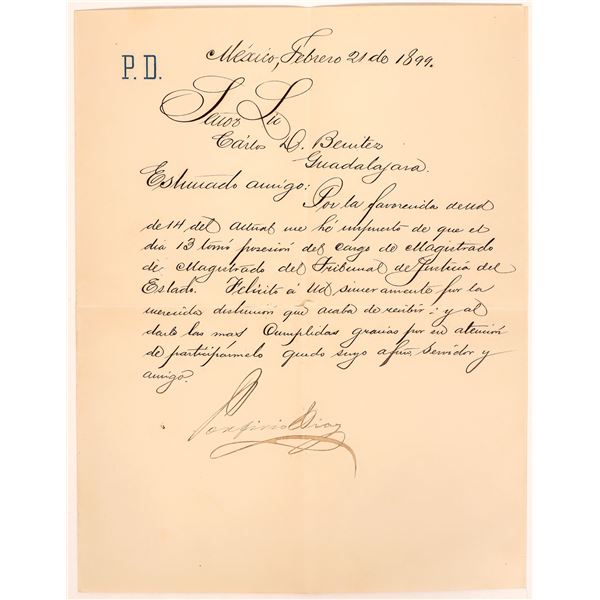 P. D.
México, Febrero 21 de 1899.
Señor Lic
Cárlos D. Benitez
Guadalajara.
Estimado amigo: Por la favorecida de Ud
de 14 del actual me hé impuesto de que el
dia 13 tomó posesión del cargo de Magistrado
de Magistrado del Tribunal de Justicia del
Estado. Felicito á Ud, sinceramente por la
merecida distinción que acaba de recibir: y al
darle las mas Cumplidas gracias por su atención
de participármelo quedo suyo afmo, Servidor y
amigo.
Porfirio Diaz